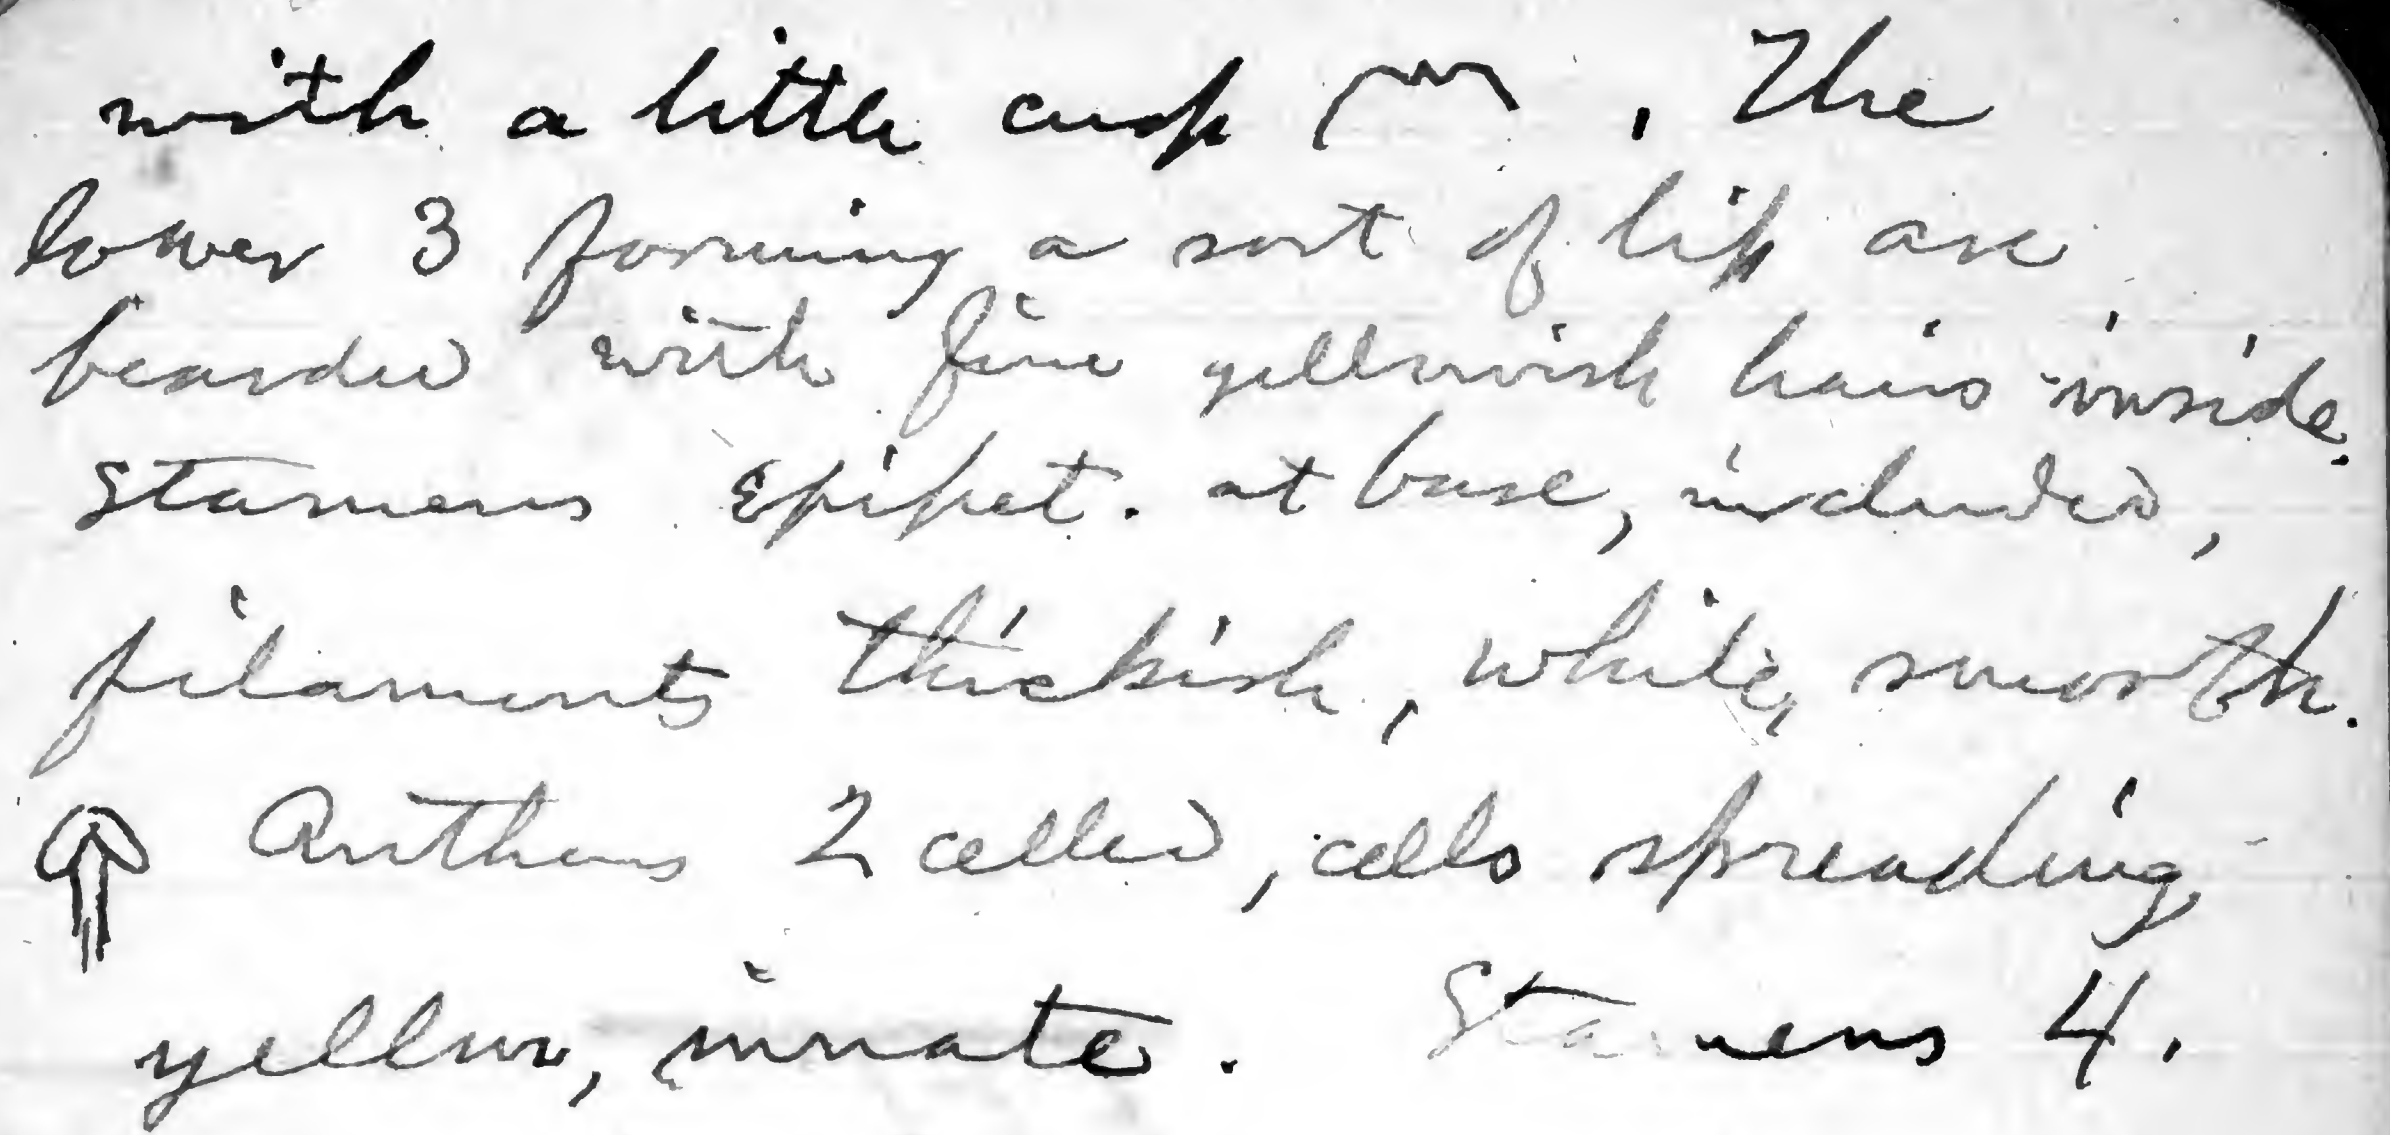 with a little cusp . The
lower 3 forming a sort of lip are
bearded with fine yellowish hairs inside.
Stamens Epipet. at base, included,
filaments thickish, white, smooth.
Anthers 2 celled, cells spreading,
yellow, innate. Stamens 4.